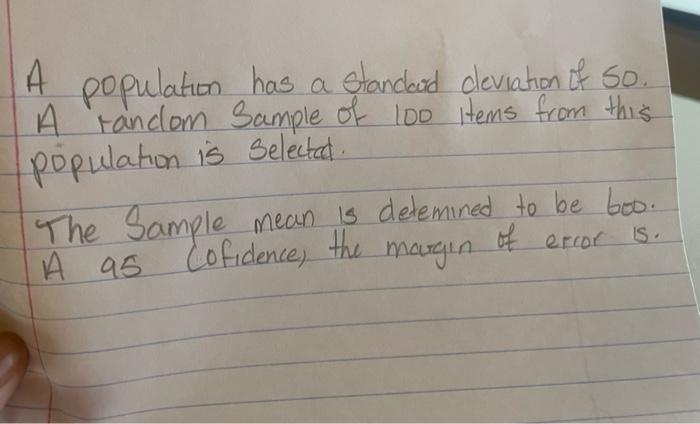 A population has a standard deviation of 50.
A random Sample of 100 Items from this
population is Selected.
The Sample mean is detemined to be 600.
A 95 Cofidence, the margin of error is.